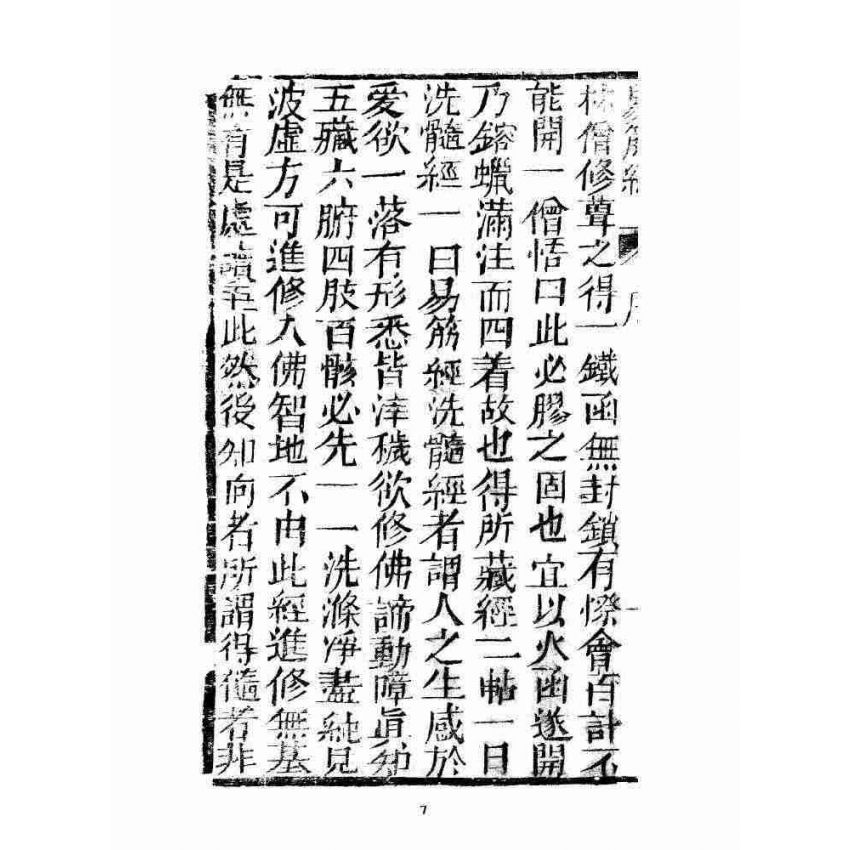 易筋經 序 一
林僧修葺之得一鐵函無封鎖有際會百計不
能開一僧悟曰此必膠之固也宜以火函遂開
乃鎔蠟滿注而四着故也得所藏經二帖一曰
洗髓經一曰易筋經洗髓經者謂人之生感於
愛欲一落有形悉皆滓穢欲修佛諦動障眞如
五臟六腑四肢百骸必先一一洗滌凈盡純見
波虛方可進修入佛智地不由此經進修無基
無有是處讀至此然後知向者所謂得髓者非
7